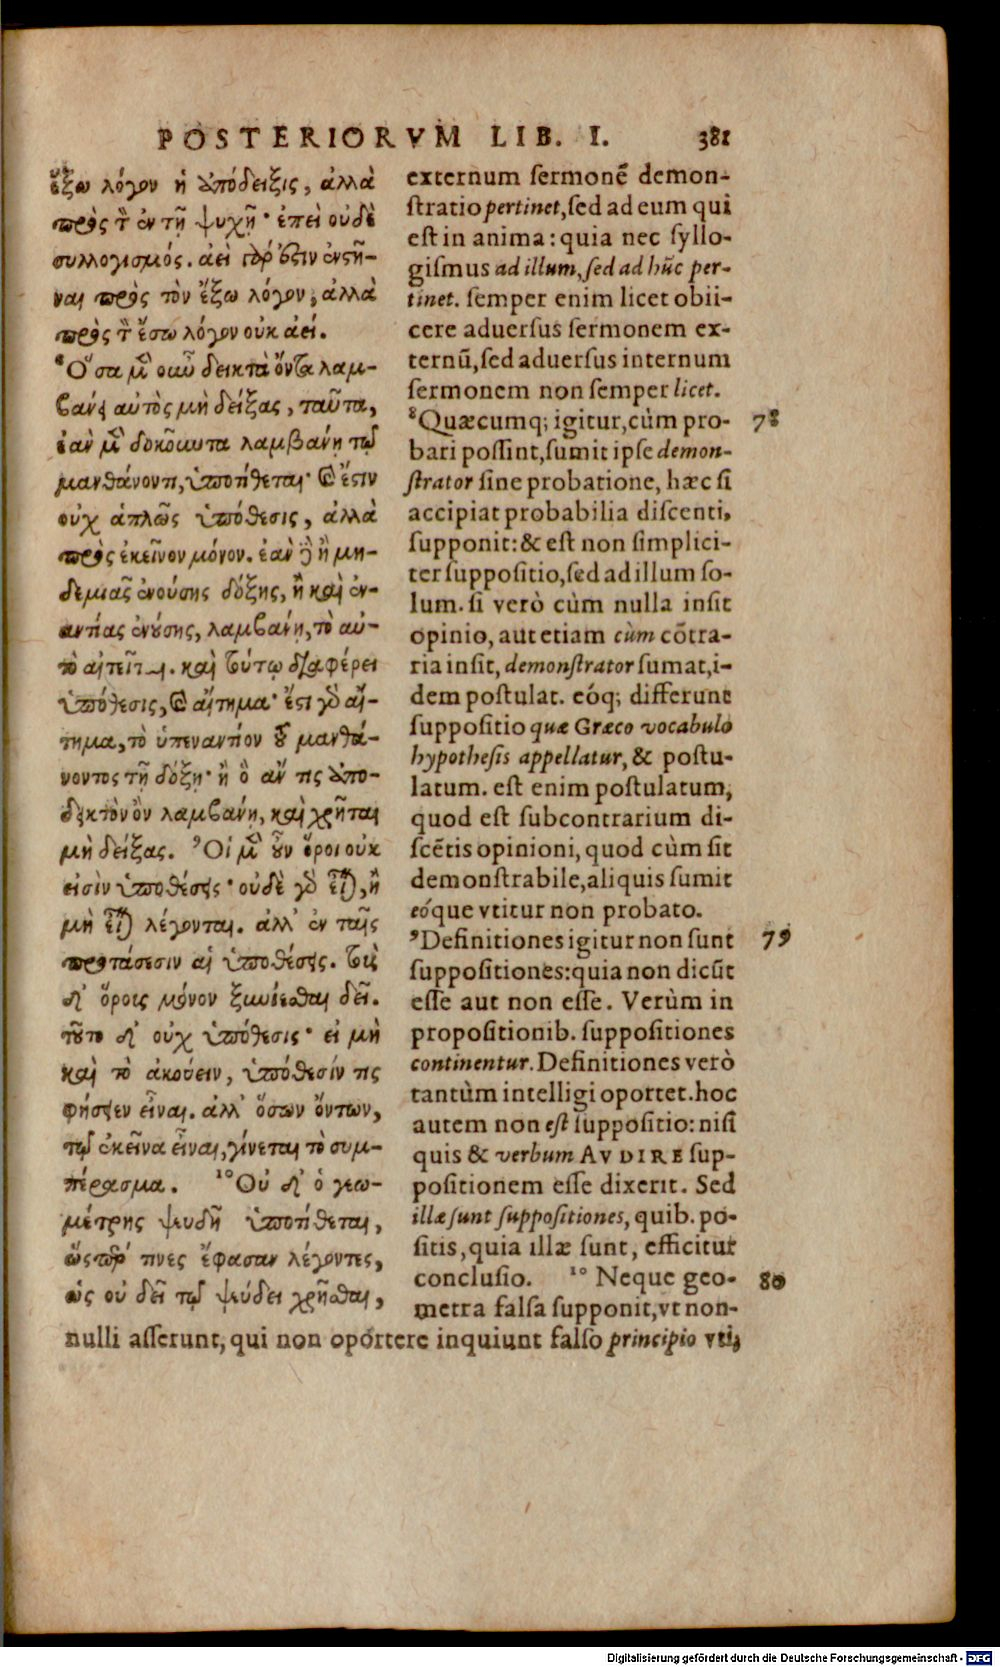 POSTERIORVM LIB. I. 381
ἔξω λόγον ἡ ἀπόδειξις, ἀλλὰ
πρὸς τὸν ἐν τῇ ψυχῇ· ἐπεὶ οὐδὲ
συλλογισμός. ἀεὶ γὰρ ἔστιν ἐνστῆ-
ναι πρὸς τὸν ἔξω λόγον, ἀλλὰ
πρὸς τὸν ἔσω λόγον οὐκ ἀεί.
⁸Ὅσα μὲν οὖν δεικτὰ ὄντα λαμ-
βάνει αὐτὸς μὴ δείξας, ταῦτα,
ἐὰν μὲν δοκοῦντα λαμβάνῃ τῷ
μανθάνοντι, ὑποτίθεται· καὶ ἔστιν
οὐχ ἁπλῶς ὑπόθεσις, ἀλλὰ
πρὸς ἐκεῖνον μόνον. ἐὰν δὲ ἢ μη-
δεμιᾶς ἐνούσης δόξης, ἢ καὶ ἐν-
αντίας ἐνούσης, λαμβάνῃ, τὸ αὐ-
τὸ αἰτεῖται. καὶ τούτῳ διαφέρει
ὑπόθεσις, καὶ αἴτημα· ἔστι γὰρ αἴ-
τημα, τὸ ὑπεναντίον τοῦ μανθά-
νοντος τῇ δόξῃ· ἢ ὃ ἄν τις ἀπο-
δεικτὸν ὂν λαμβάνῃ, καὶ χρῆται
μὴ δείξας. ⁹Οἱ μὲν οὖν ὅροι οὐκ
εἰσὶν ὑποθέσεις· οὐδὲ γὰρ εἶναι, ἢ
μὴ εἶναι λέγονται. ἀλλ' ἐν ταῖς
προτάσεσιν αἱ ὑποθέσεις. τοὺς
δ' ὅρους μόνον ξυνίεσθαι δεῖ.
τοῦτο δ' οὐχ ὑπόθεσις· εἰ μὴ
καὶ τὸ ἀκούειν, ὑπόθεσίν τις
φήσειεν εἶναι. ἀλλ' ὅσων ὄντων,
τῷ ἐκεῖνα εἶναι, γίνεται τὸ συμ-
πέρασμα. ¹⁰Οὐ δ' ὁ γεω-
μέτρης ψευδῆ ὑποτίθεται,
ὥσπερ τινες ἔφασαν λέγοντες,
ὡς οὐ δεῖ τῷ ψεύδει χρῆσθαι,
externum sermonẽ demon-
stratio pertinet, sed ad eum qui
est in anima: quia nec syllo-
gismus ad illum, sed ad hũc per-
tinet. semper enim licet obii-
cere aduersus sermonem ex-
ternũ, sed aduersus internum
sermonem non semper licet.
⁸Quæcumq; igitur, cùm pro- 78
bari possint, sumit ipse demon-
strator sine probatione, hæc si
accipiat probabilia discenti,
supponit: & est non simplici-
ter suppositio, sed ad illum so-
lum. si verò cùm nulla insit
opinio, aut etiam cùm cõtra-
ria insit, demonstrator sumat, i-
dem postulat. eóq; differunt
suppositio quæ Græco vocabulo
hypothesis appellatur, & postu-
latum. est enim postulatum,
quod est subcontrarium di-
scẽtis opinioni, quod cùm sit
demonstrabile, aliquis sumit
eóque vtitur non probato.
⁹Definitiones igitur non sunt 79
suppositiones: quia non dicũt
esse aut non esse. Verùm in
propositionib. suppositiones
continentur. Definitiones verò
tantùm intelligi oportet. hoc
autem non est suppositio: nisi
quis & verbum AVDIRE sup-
positionem esse dixerit. Sed
illæ sunt suppositiones, quib. po-
sitis, quia illæ sunt, efficitur
conclusio. ¹⁰ Neque geo- 80
metra falsa supponit, vt non-
nulli asserunt, qui non oportere inquiunt falso principio vti,
Digitalisierung gefördert durch die Deutsche Forschungsgemeinschaft - DFG